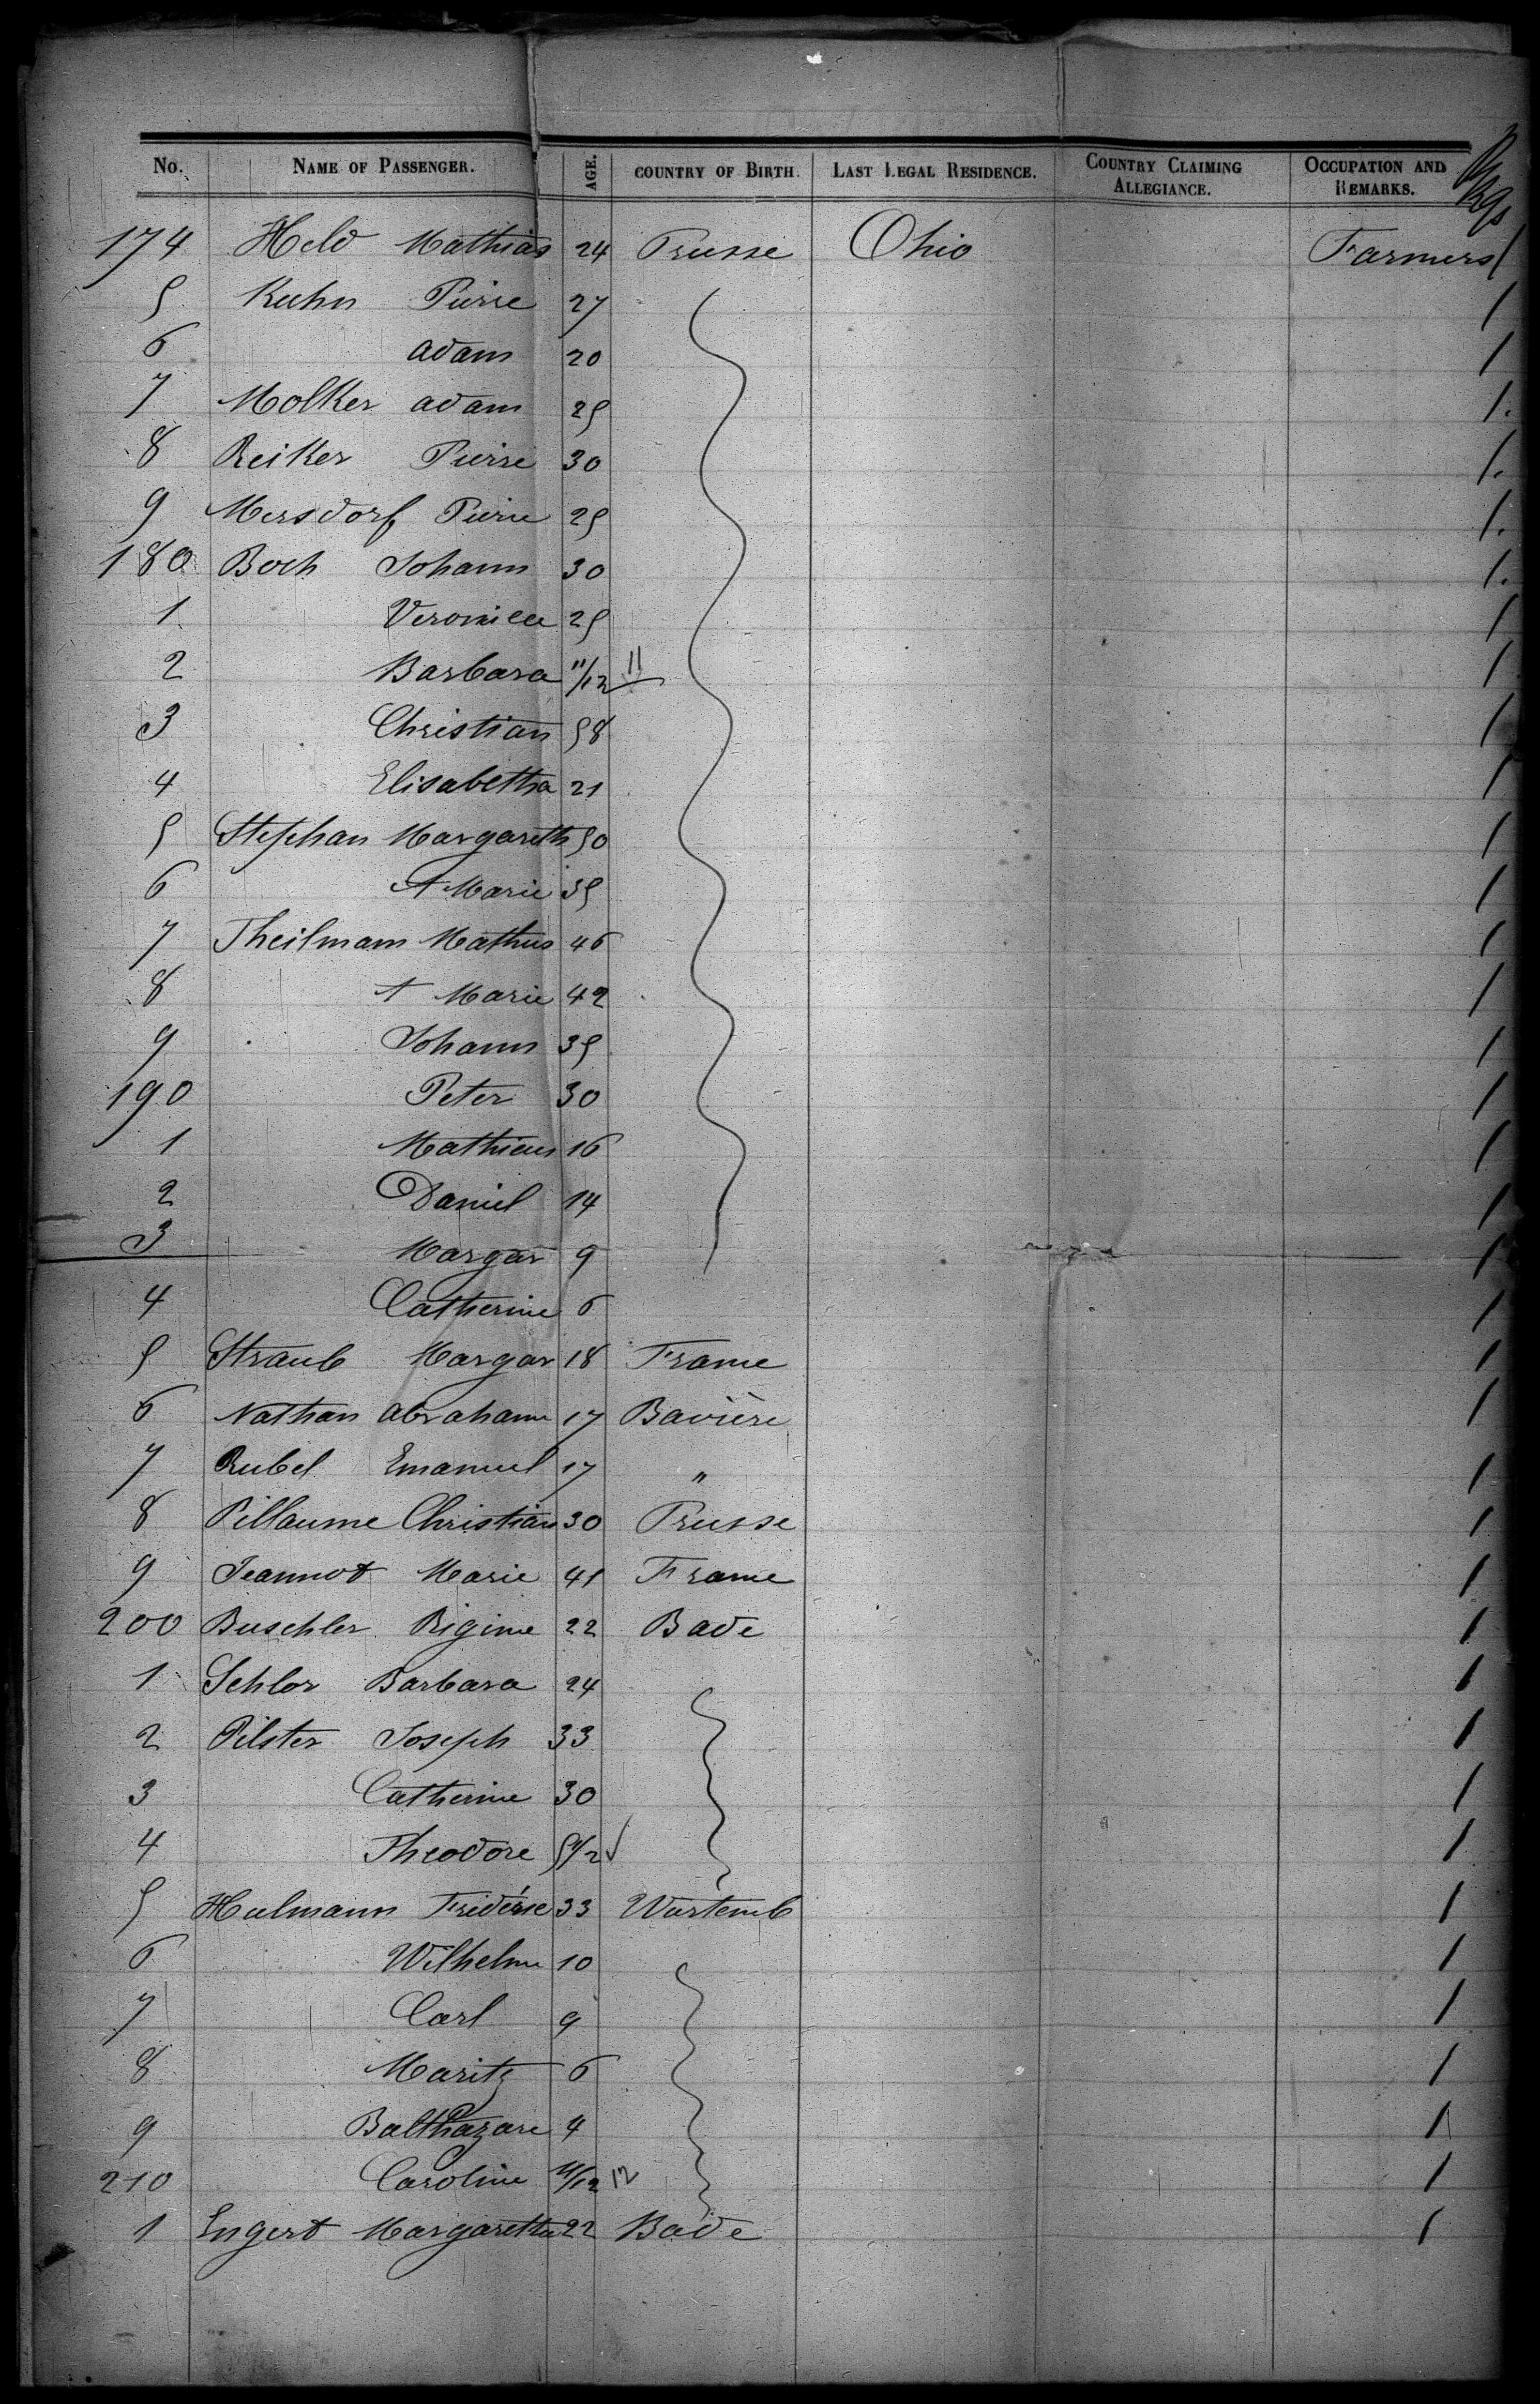 No. NAME OF PASSENGER. AGE. COUNTRY OF BIRTH. LAST LEGAL RESIDENCE. COUNTRY CLAIMING ALLEGIANCE. OCCUPATION AND REMARKS.
174 Held Mathias 24 Prusse Ohio Farmers 1
5 Kuhn Pierre 27 1
6 Adam 20 1
7 Molker Adam 25 1.
8 Reiker Pierre 30 1.
9 Mersdorf Pierre 25 1.
180 Boch Johann 30 1.
1 Veronica 25 1
2 Barbara 11/12 11 1
3 Christian 58 1
4 Elisabetha 21 1
5 Stephan Margareth 50 1
6 A Marie 35 1
7 Theilmann Mathias 46 1
8 A Marie 42 1
9 Johann 35 1
190 Peter 30 1
1 Mathieus 16 1
2 Daniel 14 1
3 Margar 9 1
4 Catherine 6 1
5 Straub Margar 18 France 1
6 Nathan Abraham 17 Bavière 1
7 Rubel Emanuel 17 " 1
8 Pillaume Christian 30 Prusse 1
9 Jeannot Marie 41 France 1
200 Buschler Rigine 22 Bade 1
1 Schlor Barbara 24 1
2 Pilster Joseph 33 1
3 Catherine 30 1
4 Theodore 5 1/2 1
5 Hulmann 33 Wurtemb 1
6 Wilhelm 10 1
7 Carl 9 1
8 Maritz 6 1
9 Balthazare 4 1
210 Caroline 11/12 12 1
1 Engert Margaretha 22 Bade 1